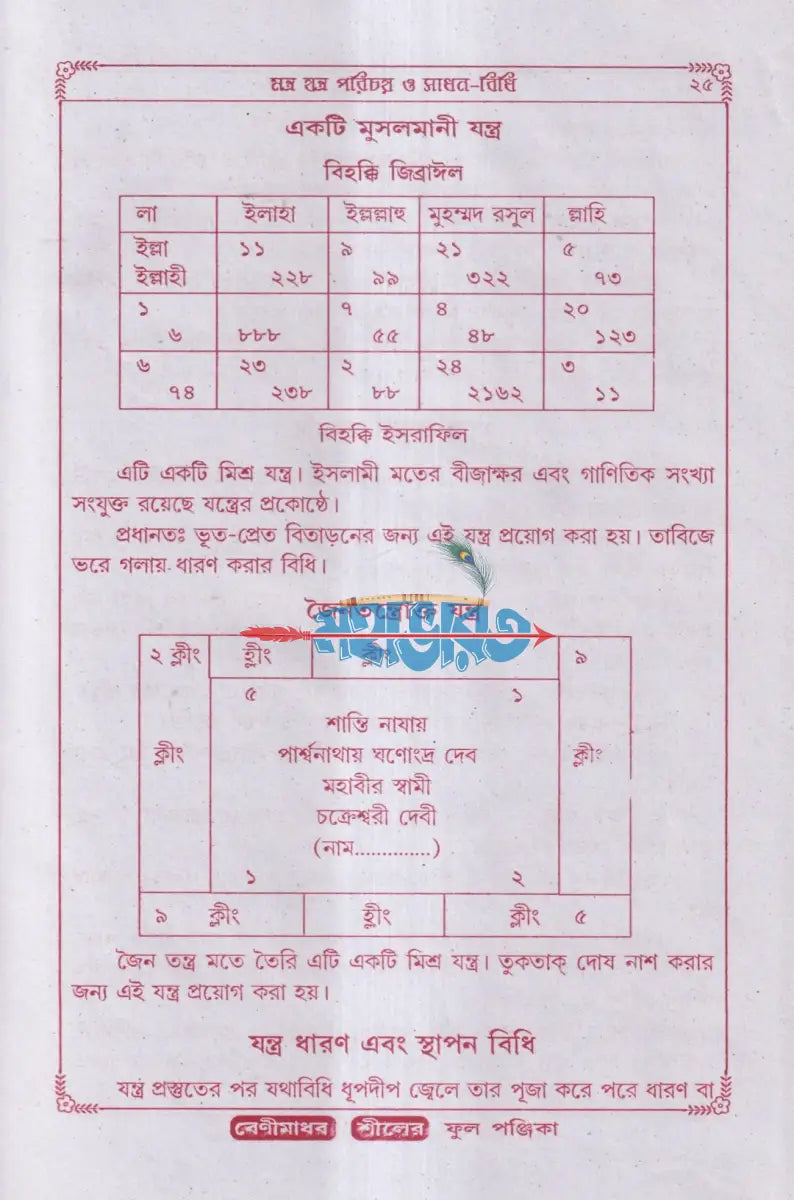 মন্ত্র যন্ত্র পরিচয় ও সাধন-বিধি ২৫
একটি মুসলমানী যন্ত্র
বিহক্কি জিব্রাঈল
লা ইলাহা ইল্লল্লাহু মুহম্মদ রসুল ল্লাহি
ইল্লা ১১ ৯ ২১ ৫
ইল্লাহী ২২৮ ৯৯ ৩২২ ৭৩
১ ৭ ৪ ২০
৬ ৮৮৮ ৫৫ ৪৮ ১২৩
৬ ২৩ ২ ২৪ ৩
৭৪ ২৩৮ ৮৮ ২১৬২ ১১
বিহক্কি ইসরাফিল
এটি একটি মিশ্র যন্ত্র। ইসলামী মতের বীজাক্ষর এবং গাণিতিক সংখ্যা
সংযুক্ত রয়েছে যন্ত্রের প্রকোষ্ঠে।
প্রধানতঃ ভূত-প্রেত বিতাড়নের জন্য এই যন্ত্র প্রয়োগ করা হয়। তাবিজে
ভরে গলায় ধারণ করার বিধি।
জৈনতন্ত্রোক্ত যন্ত্র
মহাভারত
২ ক্লীং হ্লীং ক্লীং ৯
৫ ১
শান্তি নাযায়
ক্লীং পার্শ্বনাথায় ঘণোংদ্র দেব ক্লীং
মহাবীর স্বামী
চক্রেশ্বরী দেবী
(নাম.............)
১ ২
৯ ক্লীং হ্লীং ক্লীং ৫
জৈন তন্ত্র মতে তৈরি এটি একটি মিশ্র যন্ত্র। তুকতাক্ দোষ নাশ করার
জন্য এই যন্ত্র প্রয়োগ করা হয়।
যন্ত্র ধারণ এবং স্থাপন বিধি
যন্ত্র প্রস্তুতের পর যথাবিধি ধূপদীপ জ্বেলে তার পূজা করে পরে ধারণ বা
বেণীমাধব শীলের ফুল পঞ্জিকা